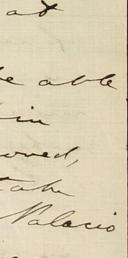 at
be able
in
oved,
take
Palacio